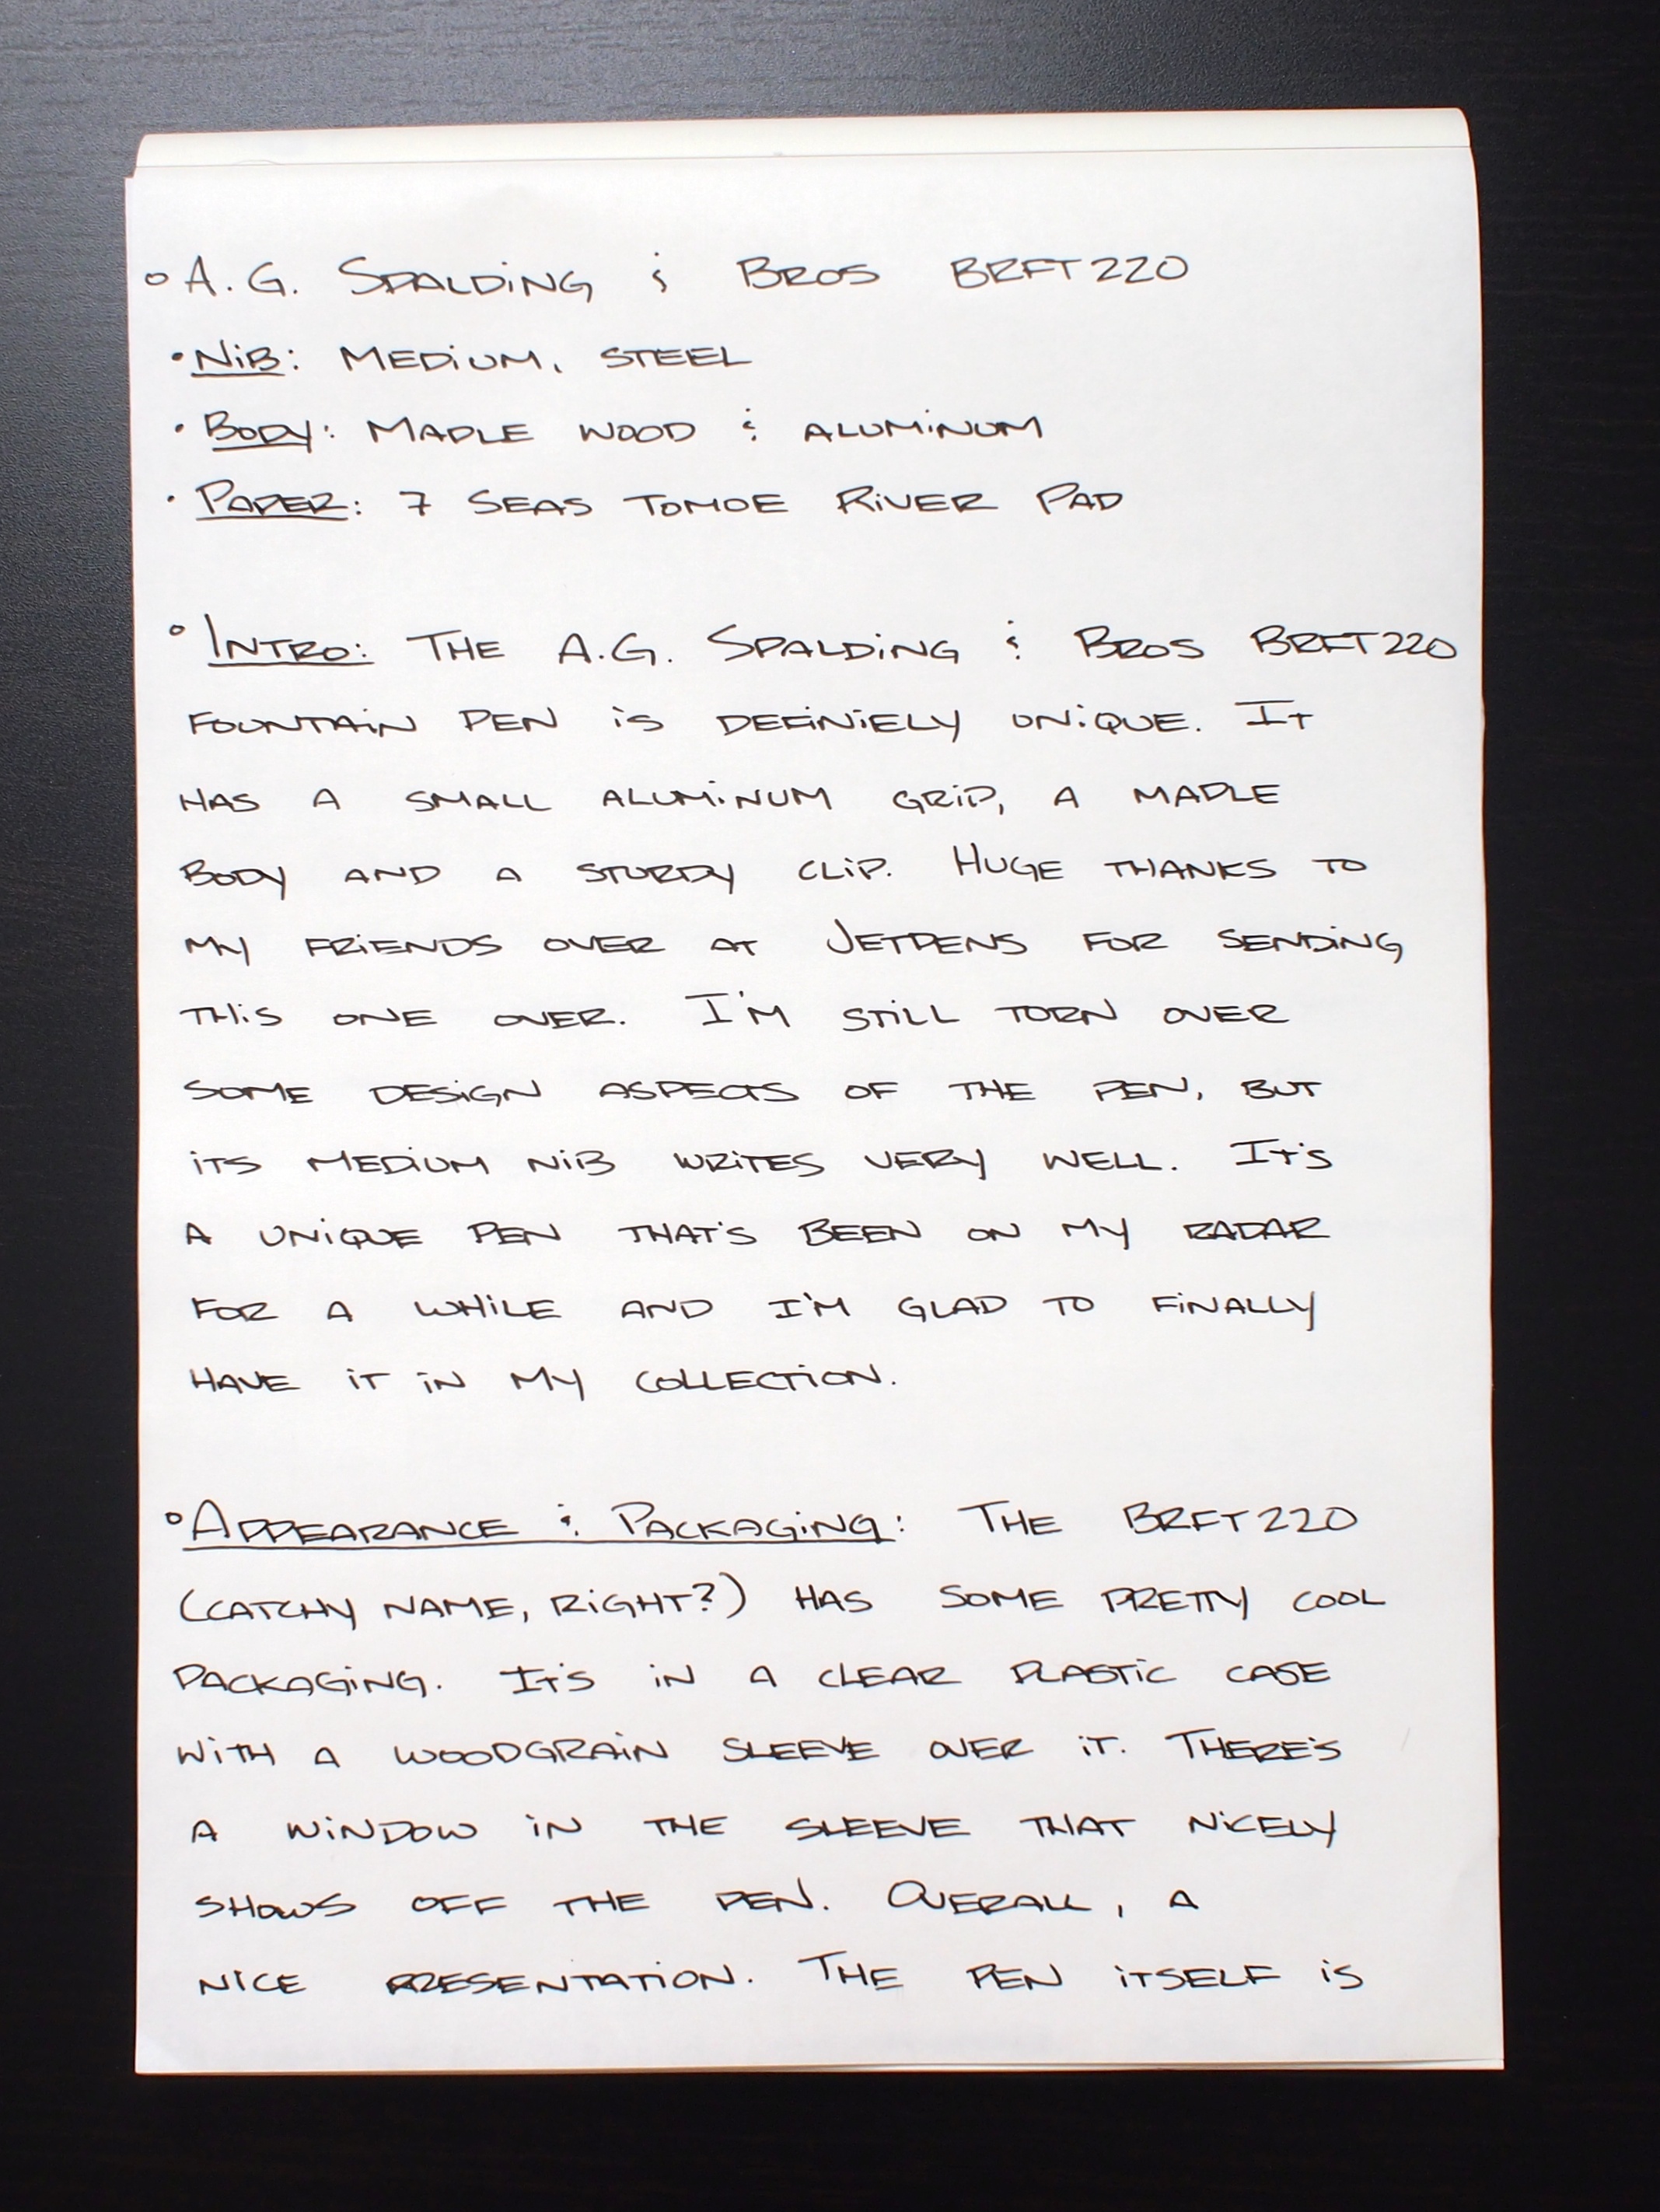 ° A.G. SPALDING & BROS BRFT220
• NIB: MEDIUM, STEEL
• BODY: MAPLE WOOD & ALUMINUM
• PAPER: 7 SEAS TOMOE RIVER PAD
° INTRO: THE A.G. SPALDING & BROS BRFT220
FOUNTAIN PEN IS DEFINIELY UNIQUE. IT
HAS A SMALL ALUMINUM GRIP, A MAPLE
BODY AND A STURDY CLIP. HUGE THANKS TO
MY FRIENDS OVER AT JETPENS FOR SENDING
THIS ONE OVER. I'M STILL TORN OVER
SOME DESIGN ASPECTS OF THE PEN, BUT
ITS MEDIUM NIB WRITES VERY WELL. IT'S
A UNIQUE PEN THAT'S BEEN ON MY RADAR
FOR A WHILE AND I'M GLAD TO FINALLY
HAVE IT IN MY COLLECTION.
° APPEARANCE & PACKAGING: THE BRFT220
(CATCHY NAME, RIGHT?) HAS SOME PRETTY COOL
PACKAGING. IT'S IN A CLEAR PLASTIC CASE
WITH A WOODGRAIN SLEEVE OVER IT. THERE'S
A WINDOW IN THE SLEEVE THAT NICELY
SHOWS OFF THE PEN. OVERALL, A
NICE PRESENTATION. THE PEN ITSELF IS